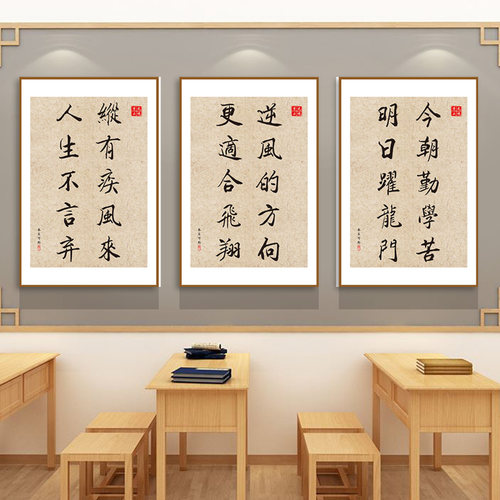 縱有疾風來
人生不言弃
逆風的方向
更適合飛翔
今朝勤學苦
明日躍龍門